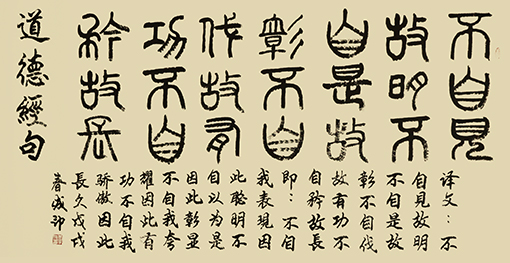 不自見
故明不
自是故
彰不自
伐故有
功不自
矜故長
道德經句
译文：不
自見故明
不自是故
彰不自伐
故有功不
自矜故長
即：不自
我表現因
此聪明不
自以为是
因此彰显
不自我夸
耀因此有
功不自我
骄傲因此
長久戊戌
春成印